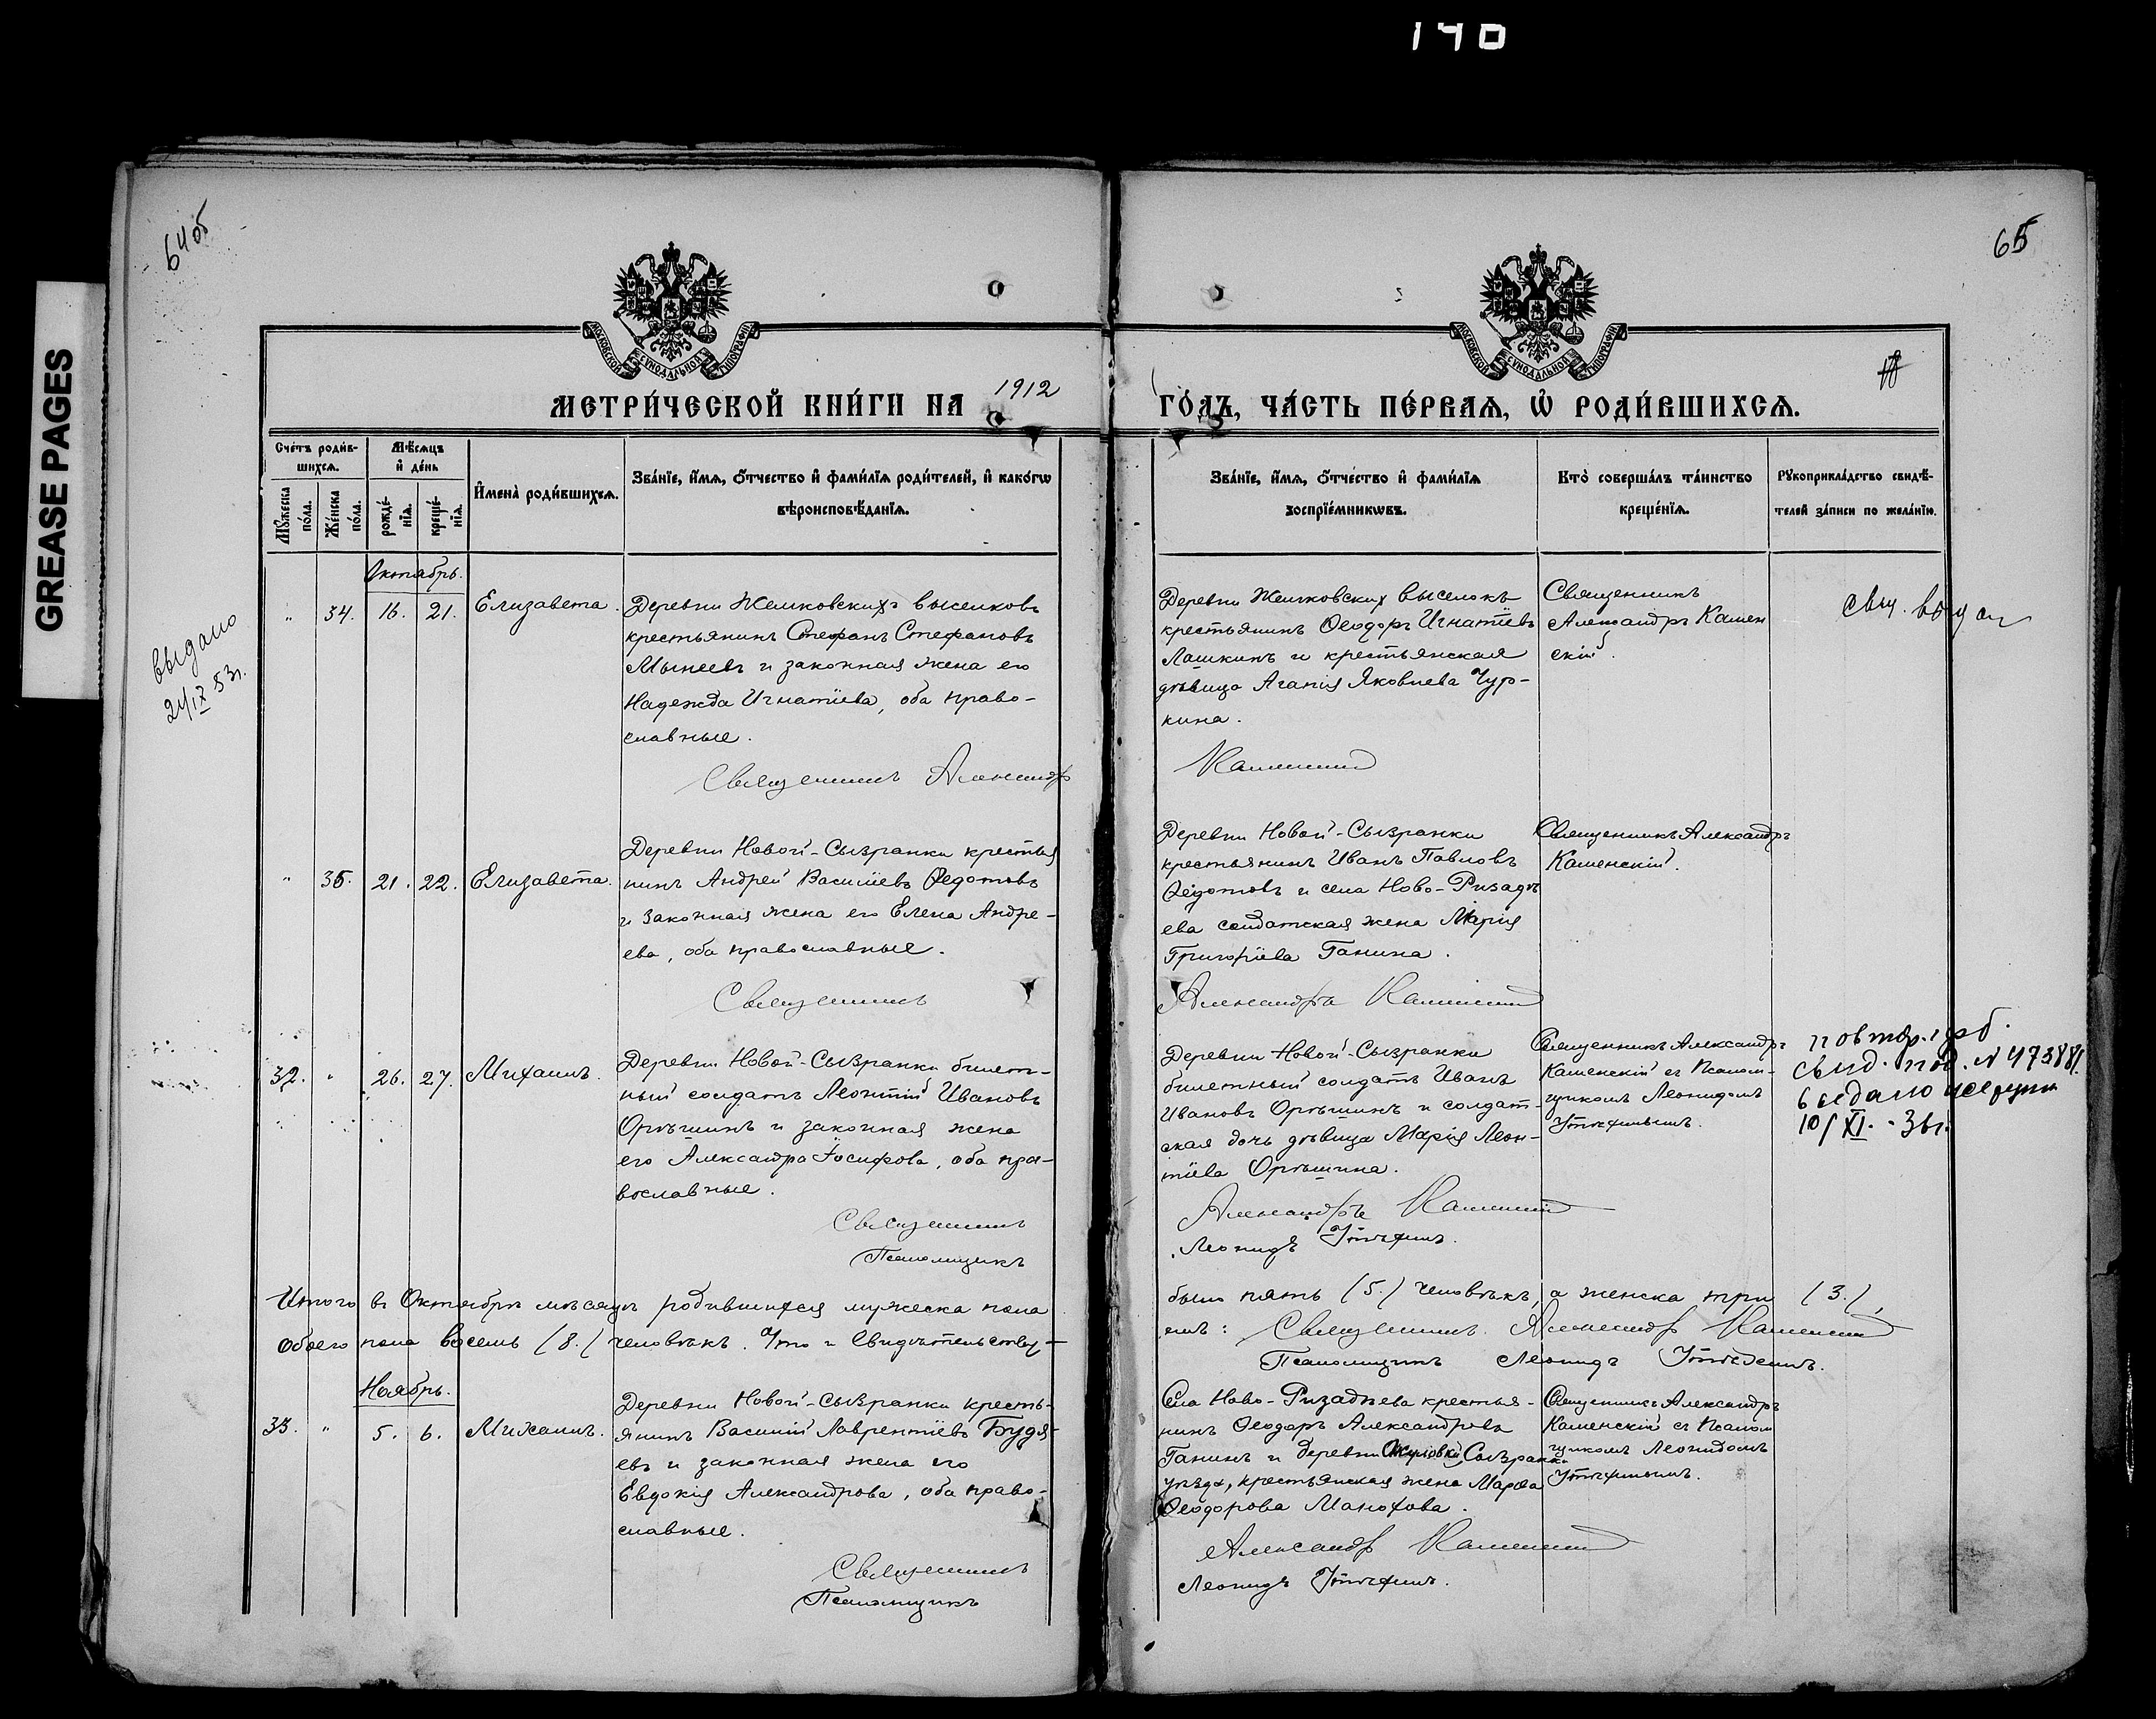 140
GREASE PAGES
64 об
65
МОСКОВСКОЙ СѴНОДАЛЬНОЙ ТИПОГРАФІИ
МОСКОВСКОЙ СѴНОДАЛЬНОЙ ТИПОГРАФІИ
МЕТРИ́ЧЕСКОЙ КНИ́ГИ НА 1912 ГО́ДЪ, ЧА́СТЬ ПЕ́РВАѦ, Ѽ РОДИ́ВШИХСѦ.
Сче́тъ роди́в-
шихсѧ.
Мꙋжеска по́ла.
Же́нска по́ла.
Мѣ́сѧцъ
и҆ де́нь
рожде́-
нїѧ.
креще́-
нїѧ.
И҆мена̀ роди́вшихсѧ.
Зва́нїе, и҆́мѧ, ѻ҆́тчество и҆ фами́лїѧ роди́телей, и҆ како́гѡ
вѣроисповѣ́данїѧ.
Зва́нїе, и҆́мѧ, ѻ҆́тчество и҆ фами́лїѧ
воспрїе́мникѡвъ.
Кто̀ соверша́лъ та́инство
креще́нїѧ.
Рꙋкоприкла́дство свидѣ́-
телей за́писи по жела́нїю.
Октябрь.
" 34. 16. 21. Елизавета.
Деревни Жемковскихъ выселковъ
крестьянинъ Стефанъ Стефановъ
Мынеевъ и законная жена его
Надежда Игнатіева, оба право-
славные.
Священникъ Александръ
Деревни Жемковских выселокъ
крестьянинъ Ѳеодоръ Игнатіевъ
Лашкинъ и крестьянская
дѣвица Агапія Яковлева Чур-
кина.
Каменскій
Священникъ
Александръ Камен
скій.
Свид. выдан
выдано
21/IX 53г.
" 35. 21. 22. Елизавета.
Деревни Новой-Сызранки крестья
нинъ Андрей Василіевъ Ѳедотовъ
и законная жена его Елена Андре-
ева, оба православные.
Священникъ
Деревни Новой-Сызранки
крестьянинъ Иванъ Павловъ
Ѳедотовъ и села Ново-Ризадѣ
ева солдатская жена Марія
Григоріева Ганина.
Александръ Каменскій
Священникъ Александръ
Каменскій.
32. " 26. 27. Михаилъ.
Деревни Новой-Сызранки билет-
ный солдатъ Леонтій Ивановъ
Орѣшинъ и законная жена
его Александра Іосифова, оба пра-
вославные.
Священникъ
Псаломщикъ
Деревни Новой-Сызранки
билетный солдатъ Иванъ
Ивановъ Орѣшинъ и солдат-
ская дочь дѣвица Марія Леон-
тіева Орѣшина.
Александръ Каменскій
Леонидъ
Священникъ Александръ
Каменскій съ Псалом-
щикомъ Леонидомъ
повтор.
свид. под. N 473881.
выдано
10/XI - 36г.
Итого въ Октябрѣ мѣсяцѣ родившихся мужеска пола было пять (5.) человѣкъ, а женска три (3.),
обоего пола восемь (8.) человѣкъ. Что и свидѣтельству-
емъ: Священникъ Александръ Каменскій
Псаломщикъ Леонидъ
Ноябрь.
33. " 5. 6. Михаилъ.
Деревни Новой-Сызранки кресть-
янинъ Василій Лаврентіевъ Будя-
евъ и законная жена его
Евдокія Александрова, оба право-
славные.
Священникъ
Псаломщикъ
Села Ново-Ризадѣева крестья-
нинъ Ѳеодоръ Александровъ
Ганинъ и деревни Сызранк.
уѣзда, крестьянская жена Марѳа
Ѳеодорова Манохова.
Александръ Каменскій
Леонидъ
Священникъ Александръ
Каменскій съ Псалом
щикомъ Леонидомъ